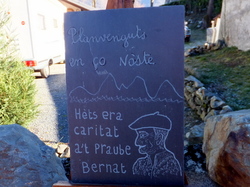 Planvenguts
en ço Nòste
Hèts era
caritat
a't praube
Bernat